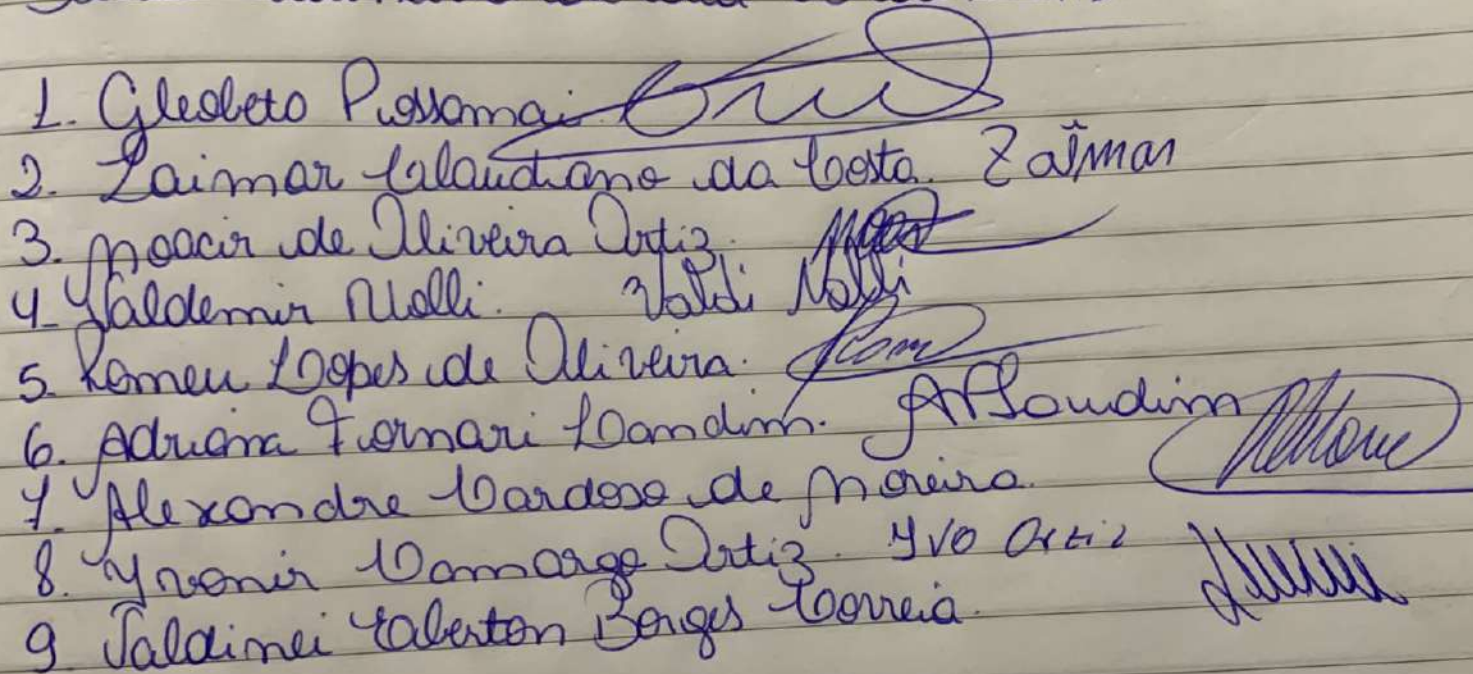 1. Gleobeto Possamai
2. Zaimar Claudiano da Costa. Zaimar
3. Moacir de Oliveira Ortiz.
4. Valdemir Nolli. Valdi Nolli
5. Romeu Lopes de Oliveira. Rom
6. Adriana Fornari Landim. AFLandim
7. Alexandre Cardoso de Moreira.
8. Yvonir Camargo Ortiz. Yvo Ortiz
9. Valdinei Caberton Borges Correia.